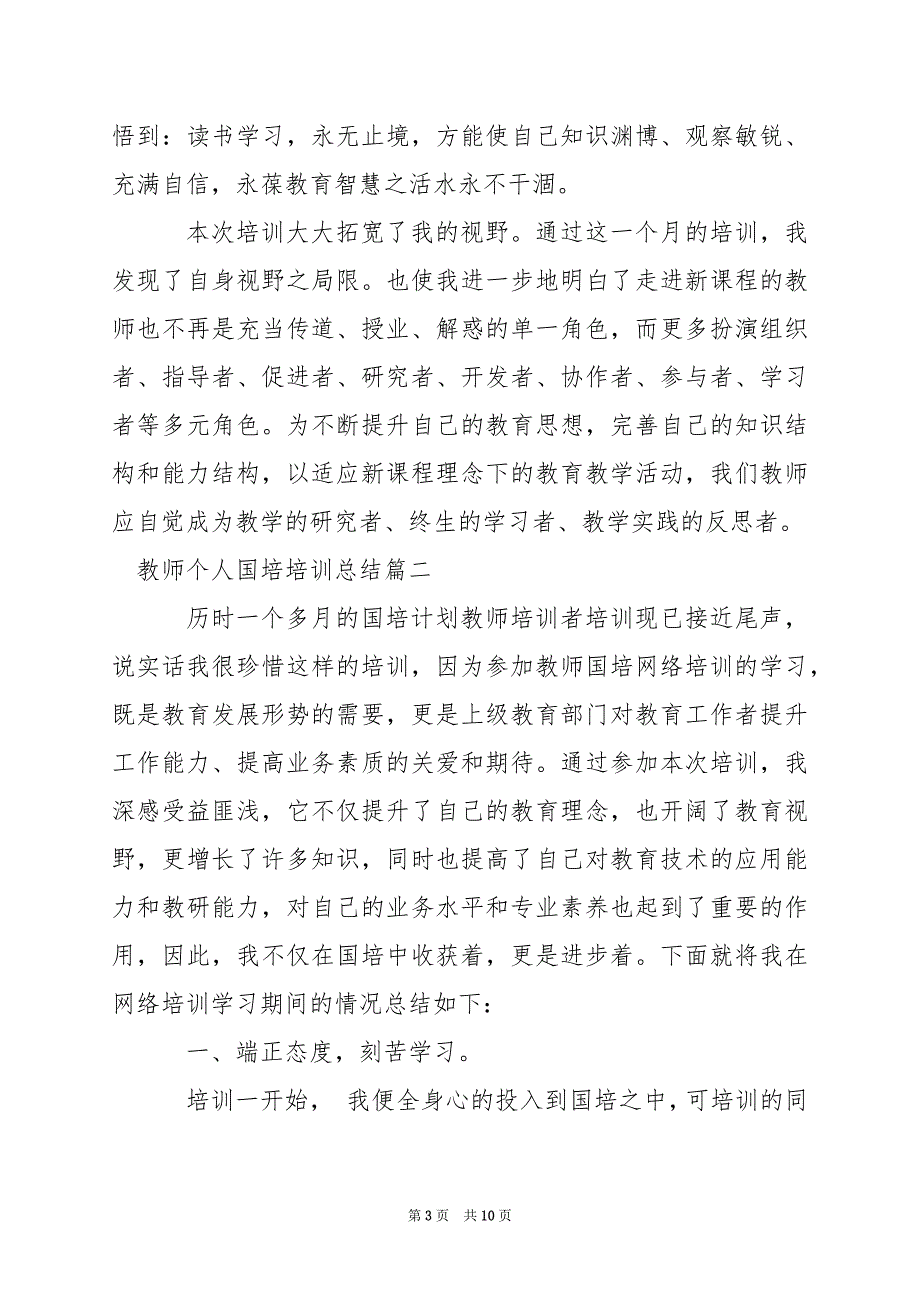 悟到：读书学习，永无止境，方能使自己知识渊博、观察敏锐、
充满自信，永葆教育智慧之活水永不干涸。
本次培训大大拓宽了我的视野。通过这一个月的培训，我
发现了自身视野之局限。也使我进一步地明白了走进新课程的教
师也不再是充当传道、授业、解惑的单一角色，而更多扮演组织
者、指导者、促进者、研究者、开发者、协作者、参与者、学习
者等多元角色。为不断提升自己的教育思想，完善自己的知识结
构和能力结构，以适应新课程理念下的教育教学活动，我们教师
应自觉成为教学的研究者、终生的学习者、教学实践的反思者。
教师个人国培培训总结篇二
历时一个多月的国培计划教师培训者培训现已接近尾声，
说实话我很珍惜这样的培训，因为参加教师国培网络培训的学习，
既是教育发展形势的需要，更是上级教育部门对教育工作者提升
工作能力、提高业务素质的关爱和期待。通过参加本次培训，我
深感受益匪浅，它不仅提升了自己的教育理念，也开阔了教育视
野，更增长了许多知识，同时也提高了自己对教育技术的应用能
力和教研能力，对自己的业务水平和专业素养也起到了重要的作
用，因此，我不仅在国培中收获着，更是进步着。下面就将我在
网络培训学习期间的情况总结如下：
一、端正态度，刻苦学习。
培训一开始， 我便全身心的投入到国培之中，可培训的同
第 3 页 共 10 页